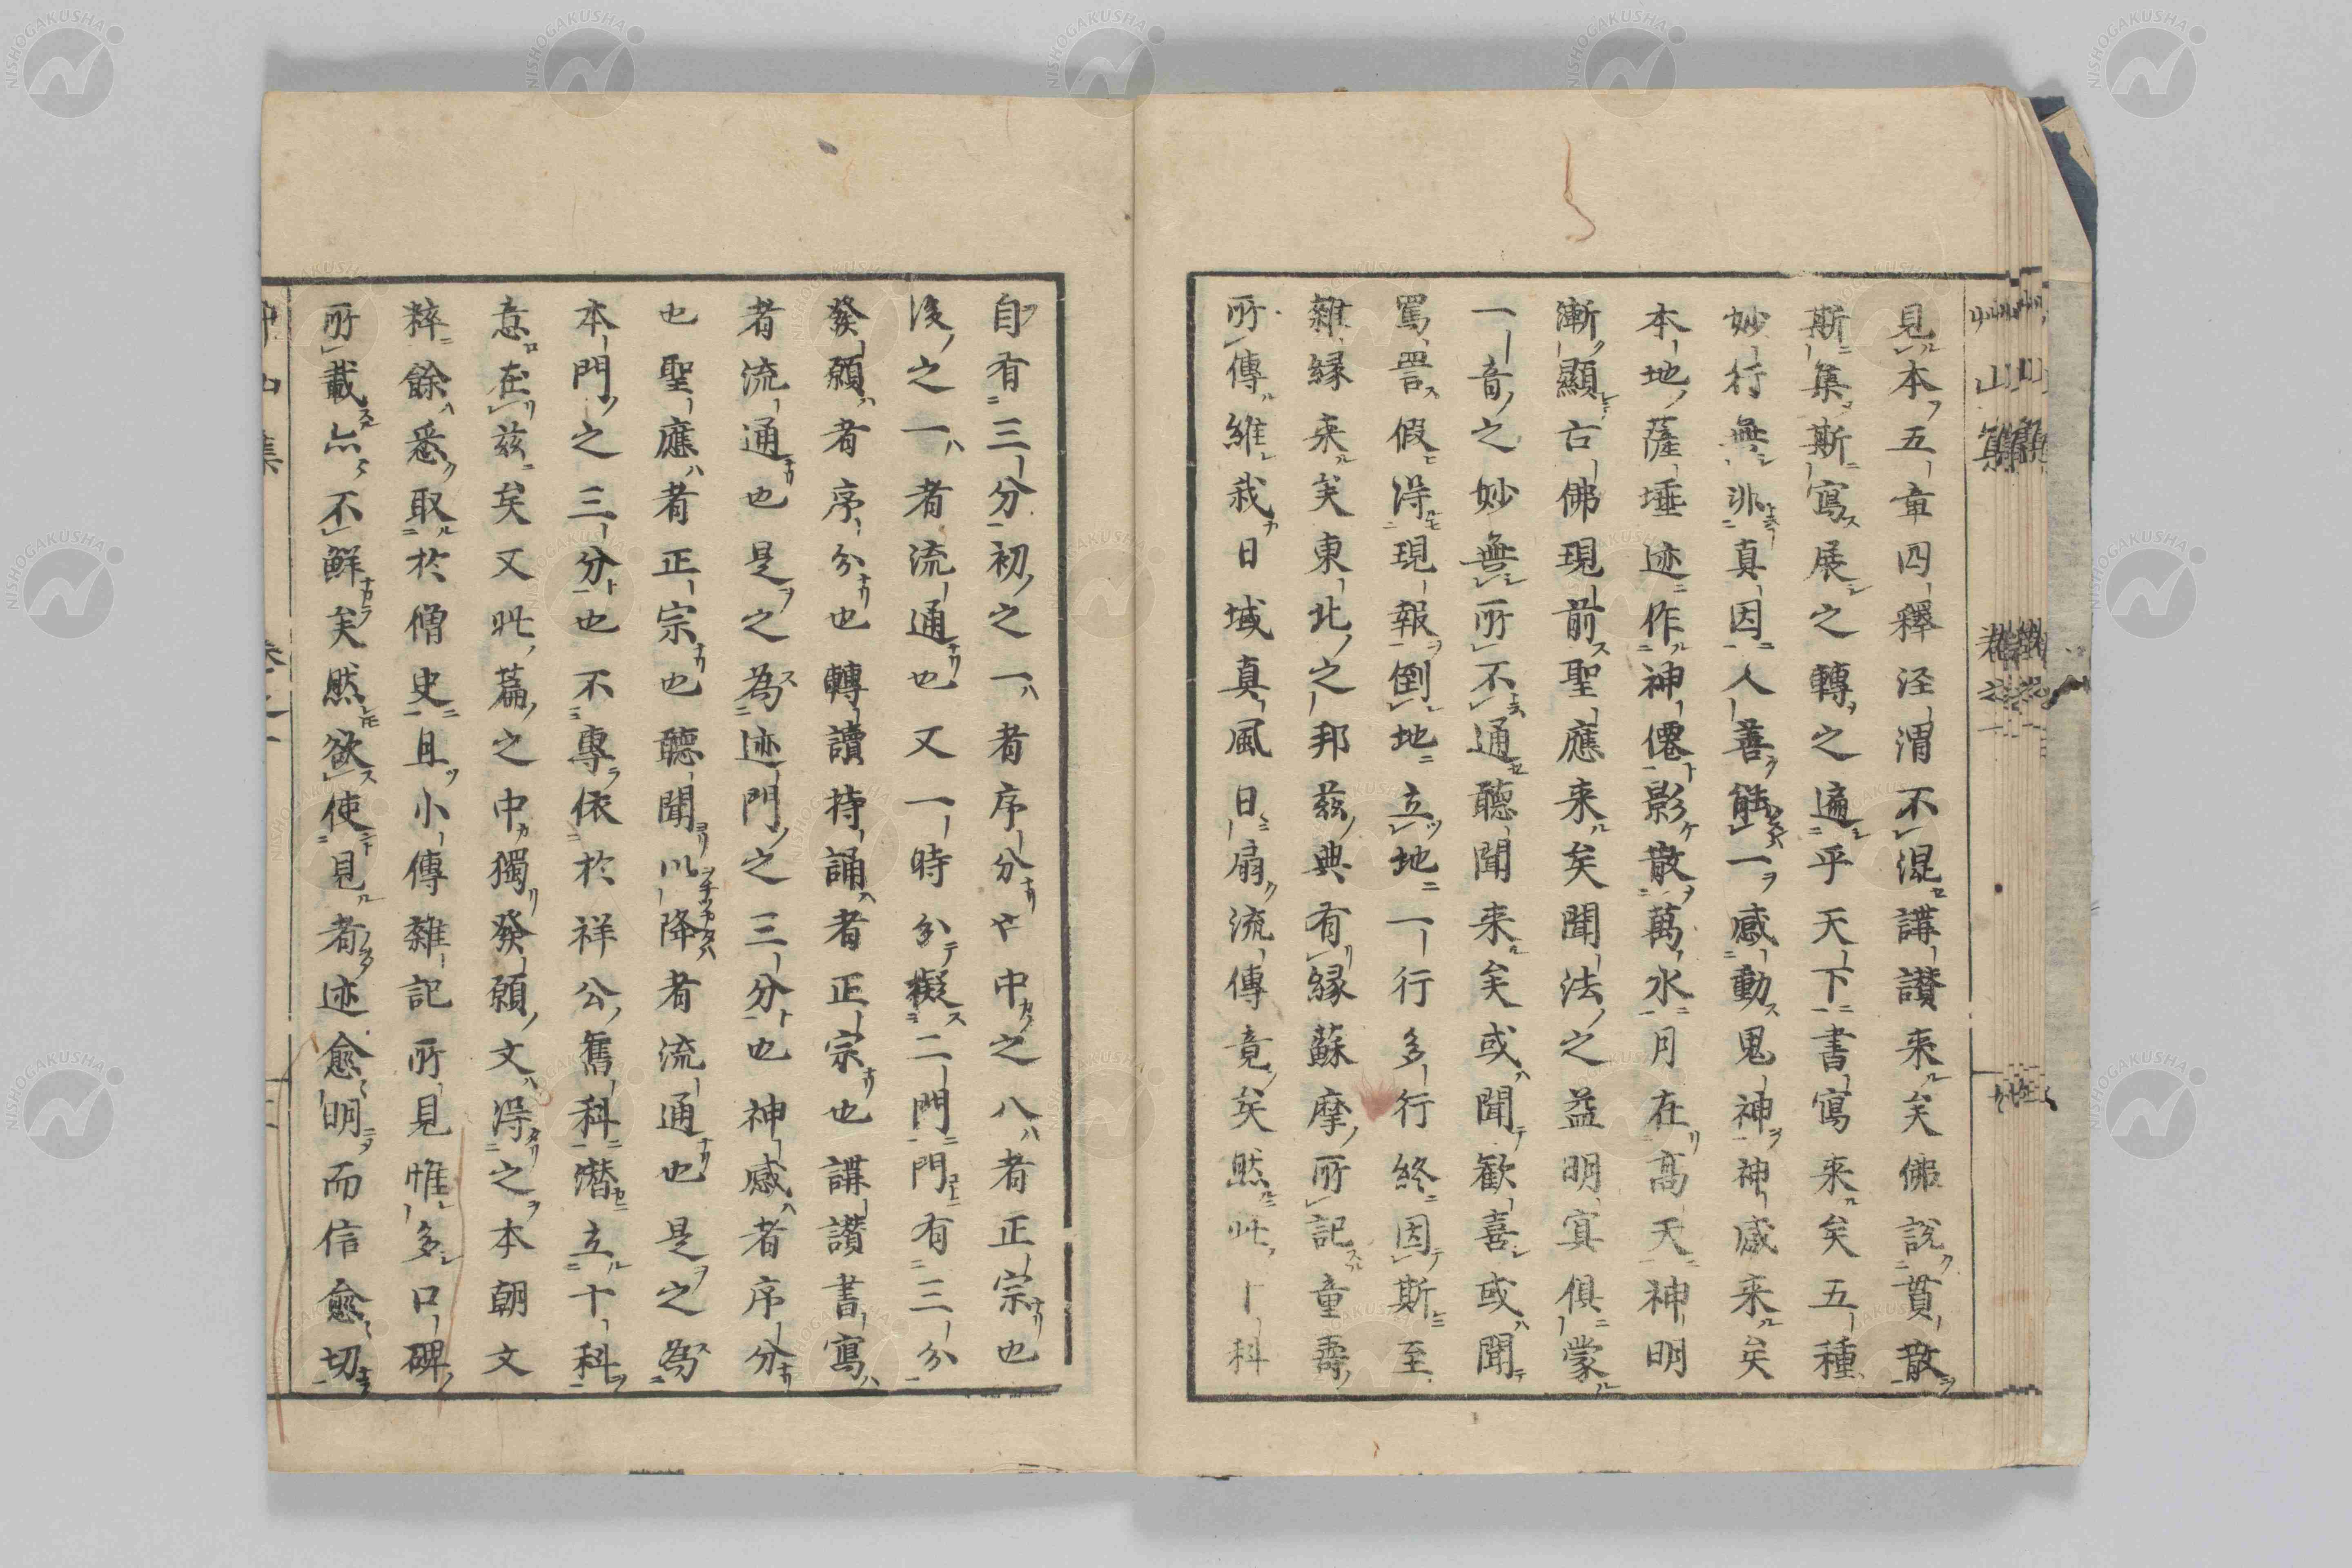 見本五章四釋涇渭不混講讃来矣佛説貫散
斯集斯寫展之轉之遍乎天下書寫来矣五種
妙行無非真因人善能一感動鬼神神感来矣
本地薩埵迹作神僊影散萬水月在高天神明
漸顯古佛現前聖應来矣聞法之益明寘俱蒙
一音之妙無所不通聽聞来矣或聞歡喜或聞
罵詈假淂現報倒地立地一行多行終因斯至
雜縁来矣東北之邦兹典有縁蘇摩所記童壽
所傳維我日域真風日扇流傳竟矣然此十科
自有三分初之一者序分也中之八者正宗也
後之一者流通也又一時分擬二門門有三分
發願者序分也轉讀持誦者正宗也講讃書寫
者流通也是之為迹門之三分也神感者序分
也聖應者正宗也聽聞以降者流通也是之為
本門之三分也不專依於祥公舊科潜立十科
意在兹矣又此篇之中獨發願文淂之本朝文
粹餘悉取於僧史且小傳雜記所見惟多口碑
所載亦不鮮矣然欲使見者迹愈明而信愈切